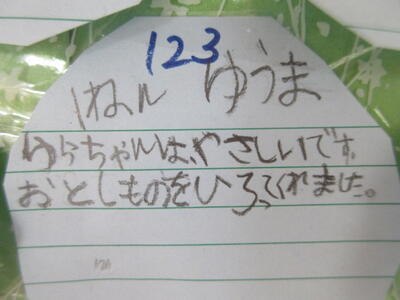 123
1ねん ゆうま
ゆらちゃんは、やさしいです。
おとしものをひろってくれました。